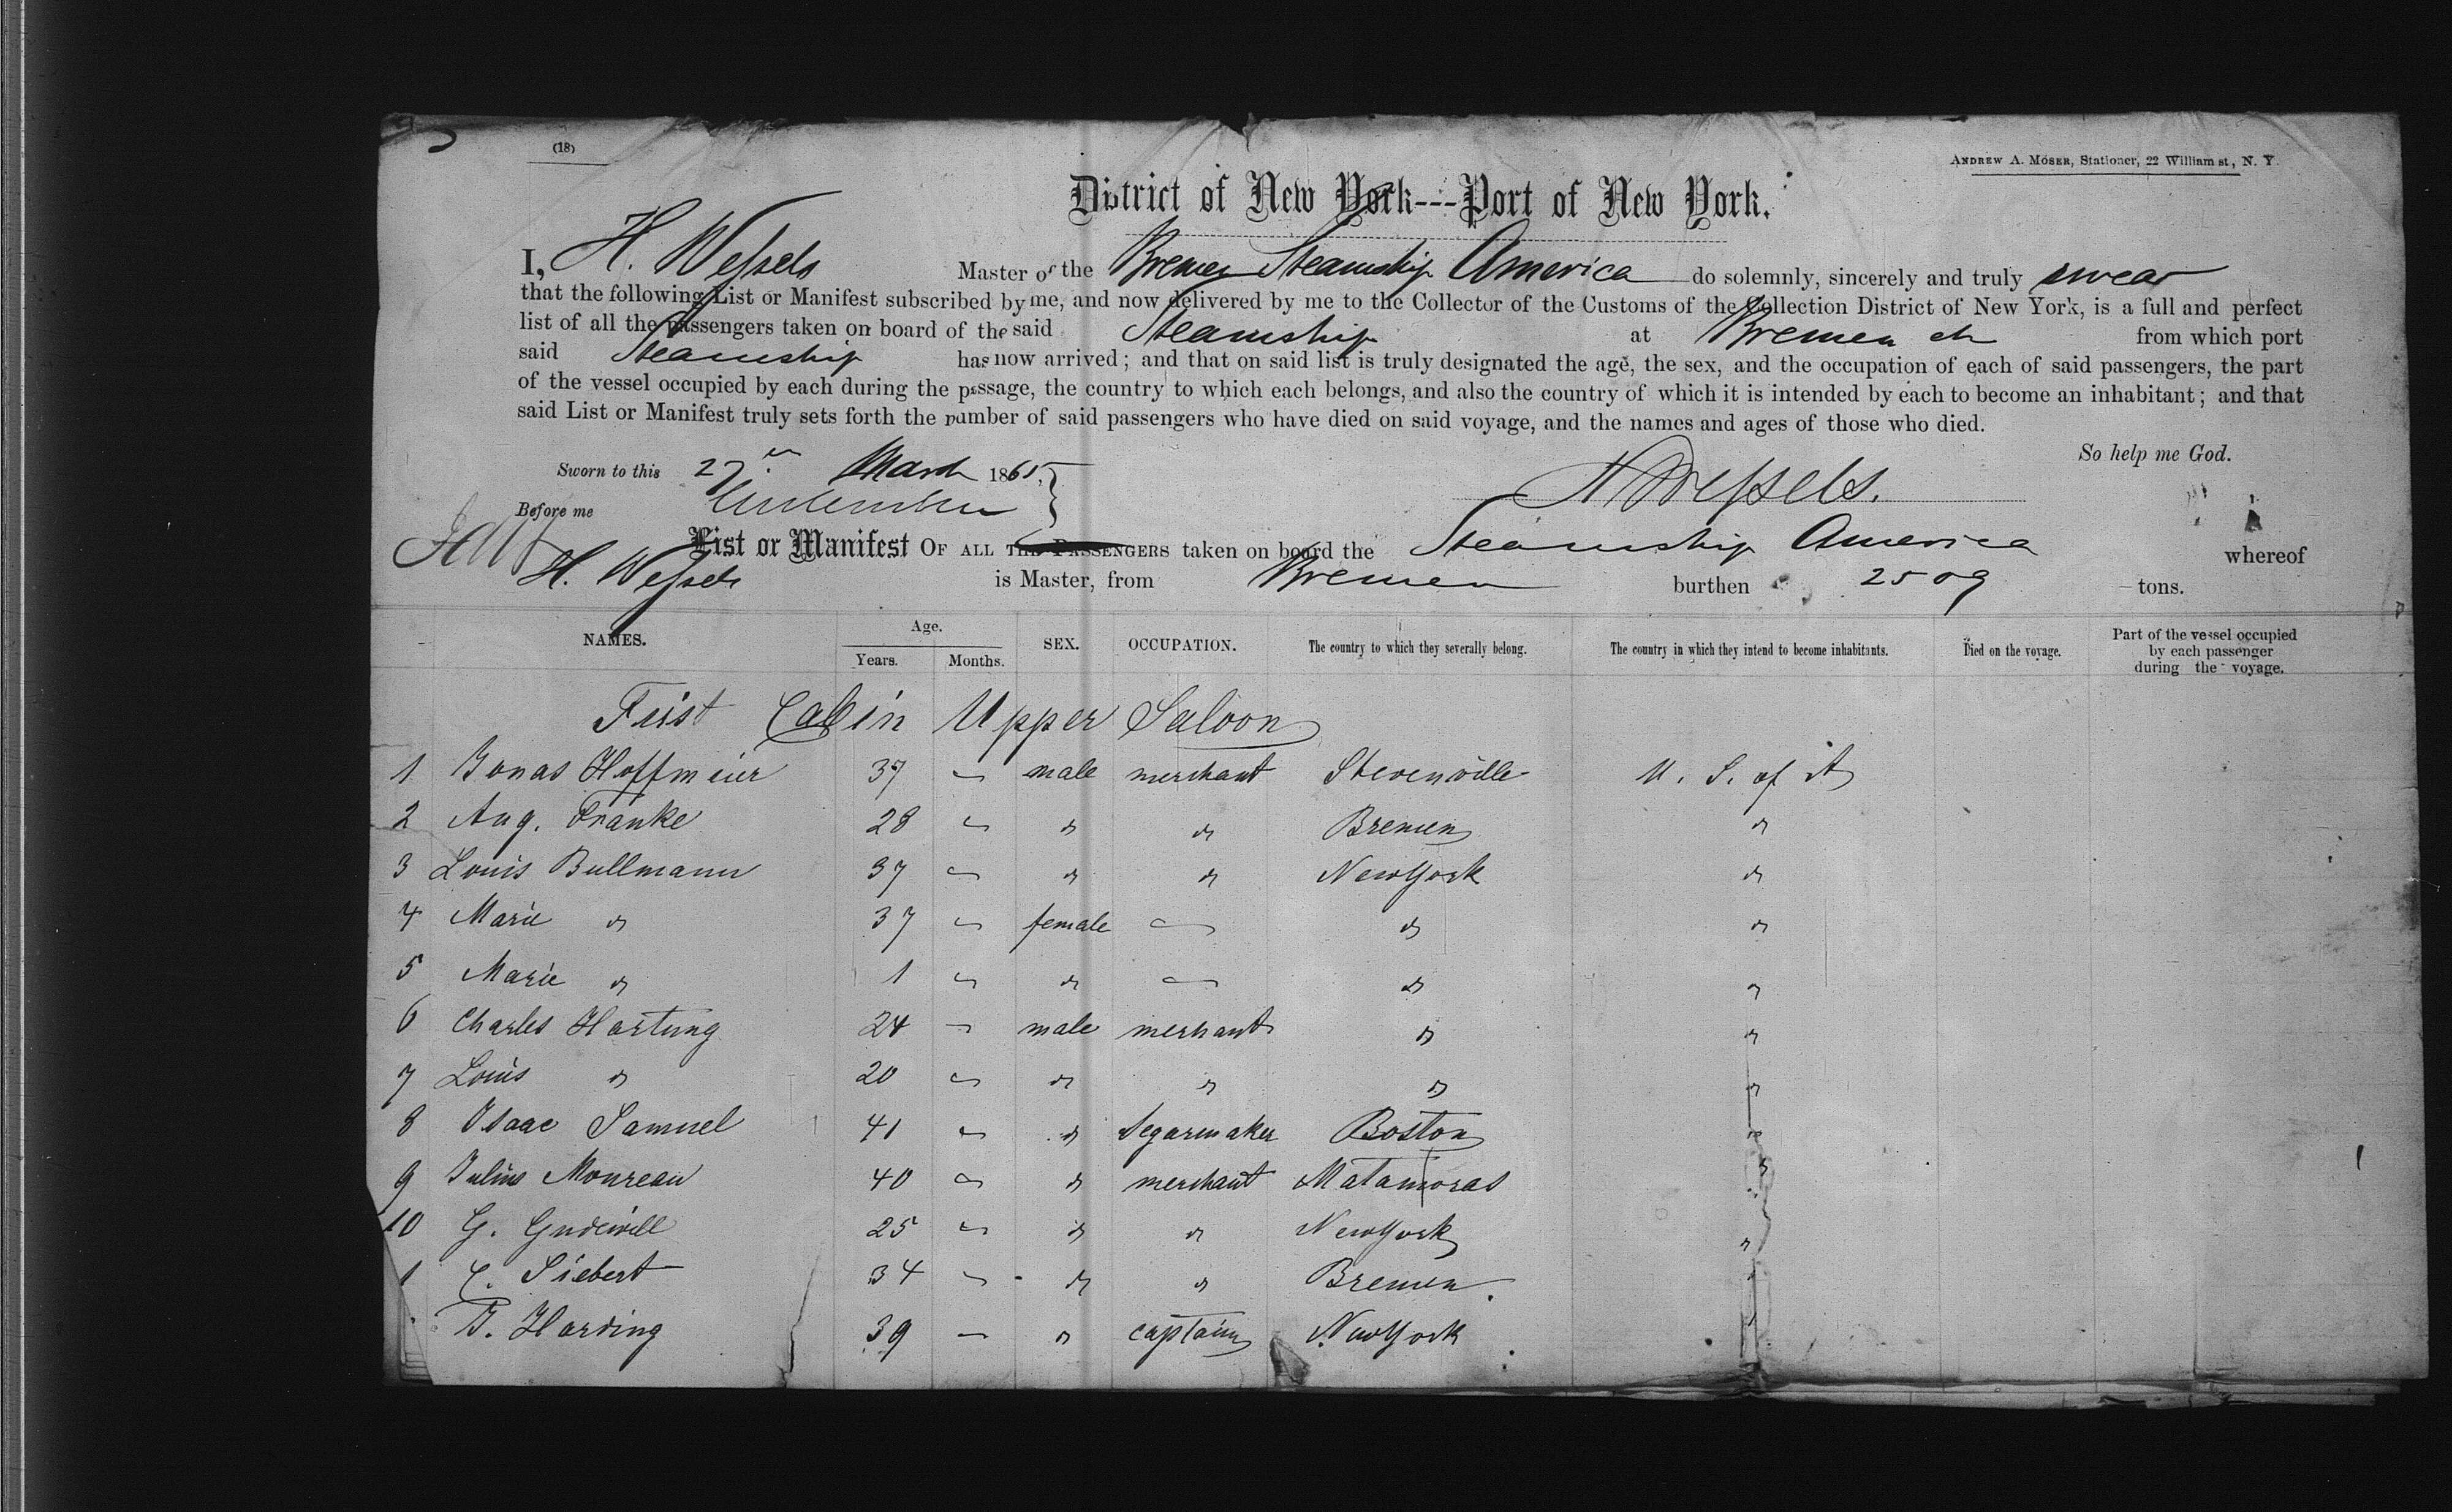 (18)
ANDREW A. MOSER, Stationer, 22 William st, N. Y.
District of New York---Port of New York.
I, H. Wessels Master of the Bremen Steamship America do solemnly, sincerely and truly swear
that the following List or Manifest subscribed by me, and now delivered by me to the Collector of the Customs of the Collection District of New York, is a full and perfect
list of all the passengers taken on board of the said Steamship at Bremen from which port
said Steamship has now arrived; and that on said list is truly designated the age, the sex, and the occupation of each of said passengers, the part
of the vessel occupied by each during the passage, the country to which each belongs, and also the country of which it is intended by each to become an inhabitant; and that
said List or Manifest truly sets forth the number of said passengers who have died on said voyage, and the names and ages of those who died.
So help me God.
Sworn to this 27 March 1865,
H Wessels.
Before me
List or Manifest OF ALL THE PASSENGERS taken on board the Steamship America whereof
H. Wessels is Master, from Bremen burthen 2509 tons.
NAMES. Age. Years. Months. SEX. OCCUPATION. The country to which they severally belong. The country in which they intend to become inhabitants. Died on the voyage. Part of the vessel occupied by each passenger during the voyage.
First Cabin Upper Saloon
1 Jonas Hoffmeier 37 — male merchant Stevenville U. S. of A
2 Aug. Franke 28 — " " Bremen "
3 Louis Bullmann 37 — " " NewYork "
4 Marie " 37 — female — " "
5 Marie " 1 — " — " "
6 Charles Hartung 24 — male merchant " "
7 Louis " 20 — " " " "
8 Isaac Samuel 41 — " Segarmaker Boston "
9 Julius Moureau 40 — " merchant Matamoras "
10 G. Gudewill 25 — " " NewYork "
1 C. Siebert 34 — " " Bremen. "
J. Harding 39 — " captain NewYork "